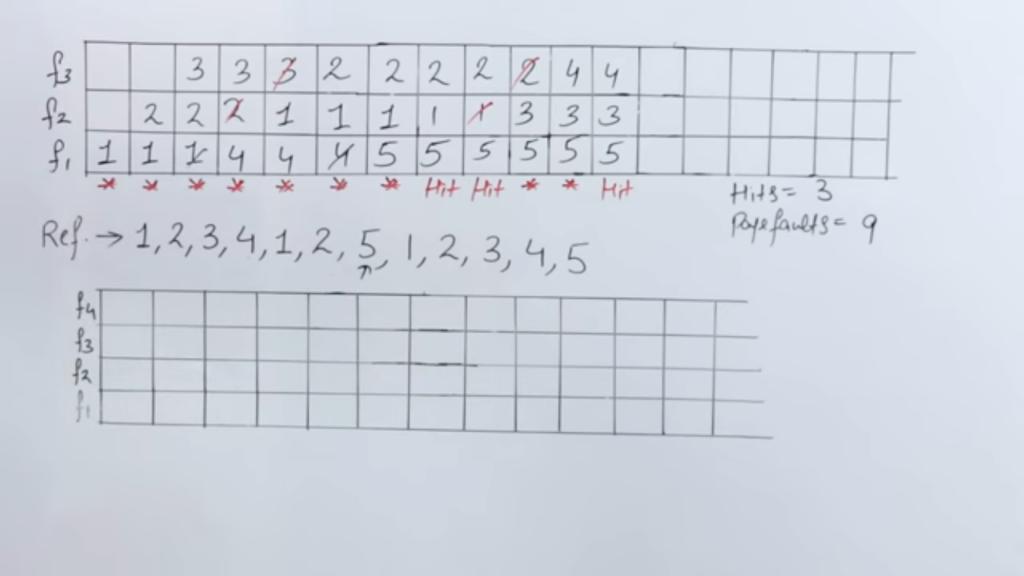 f3 3 3 3 2 2 2 2 2 4 4
f2 2 2 2 1 1 1 1 1 3 3 3
f1 1 1 1 4 4 4 5 5 5 5 5 5
* * * * * * * Hit Hit * * Hit
Hits= 3
Pagefaults= 9
Ref. → 1, 2, 3, 4, 1, 2, 5, 1, 2, 3, 4, 5
↑
f4
f3
f2
f1